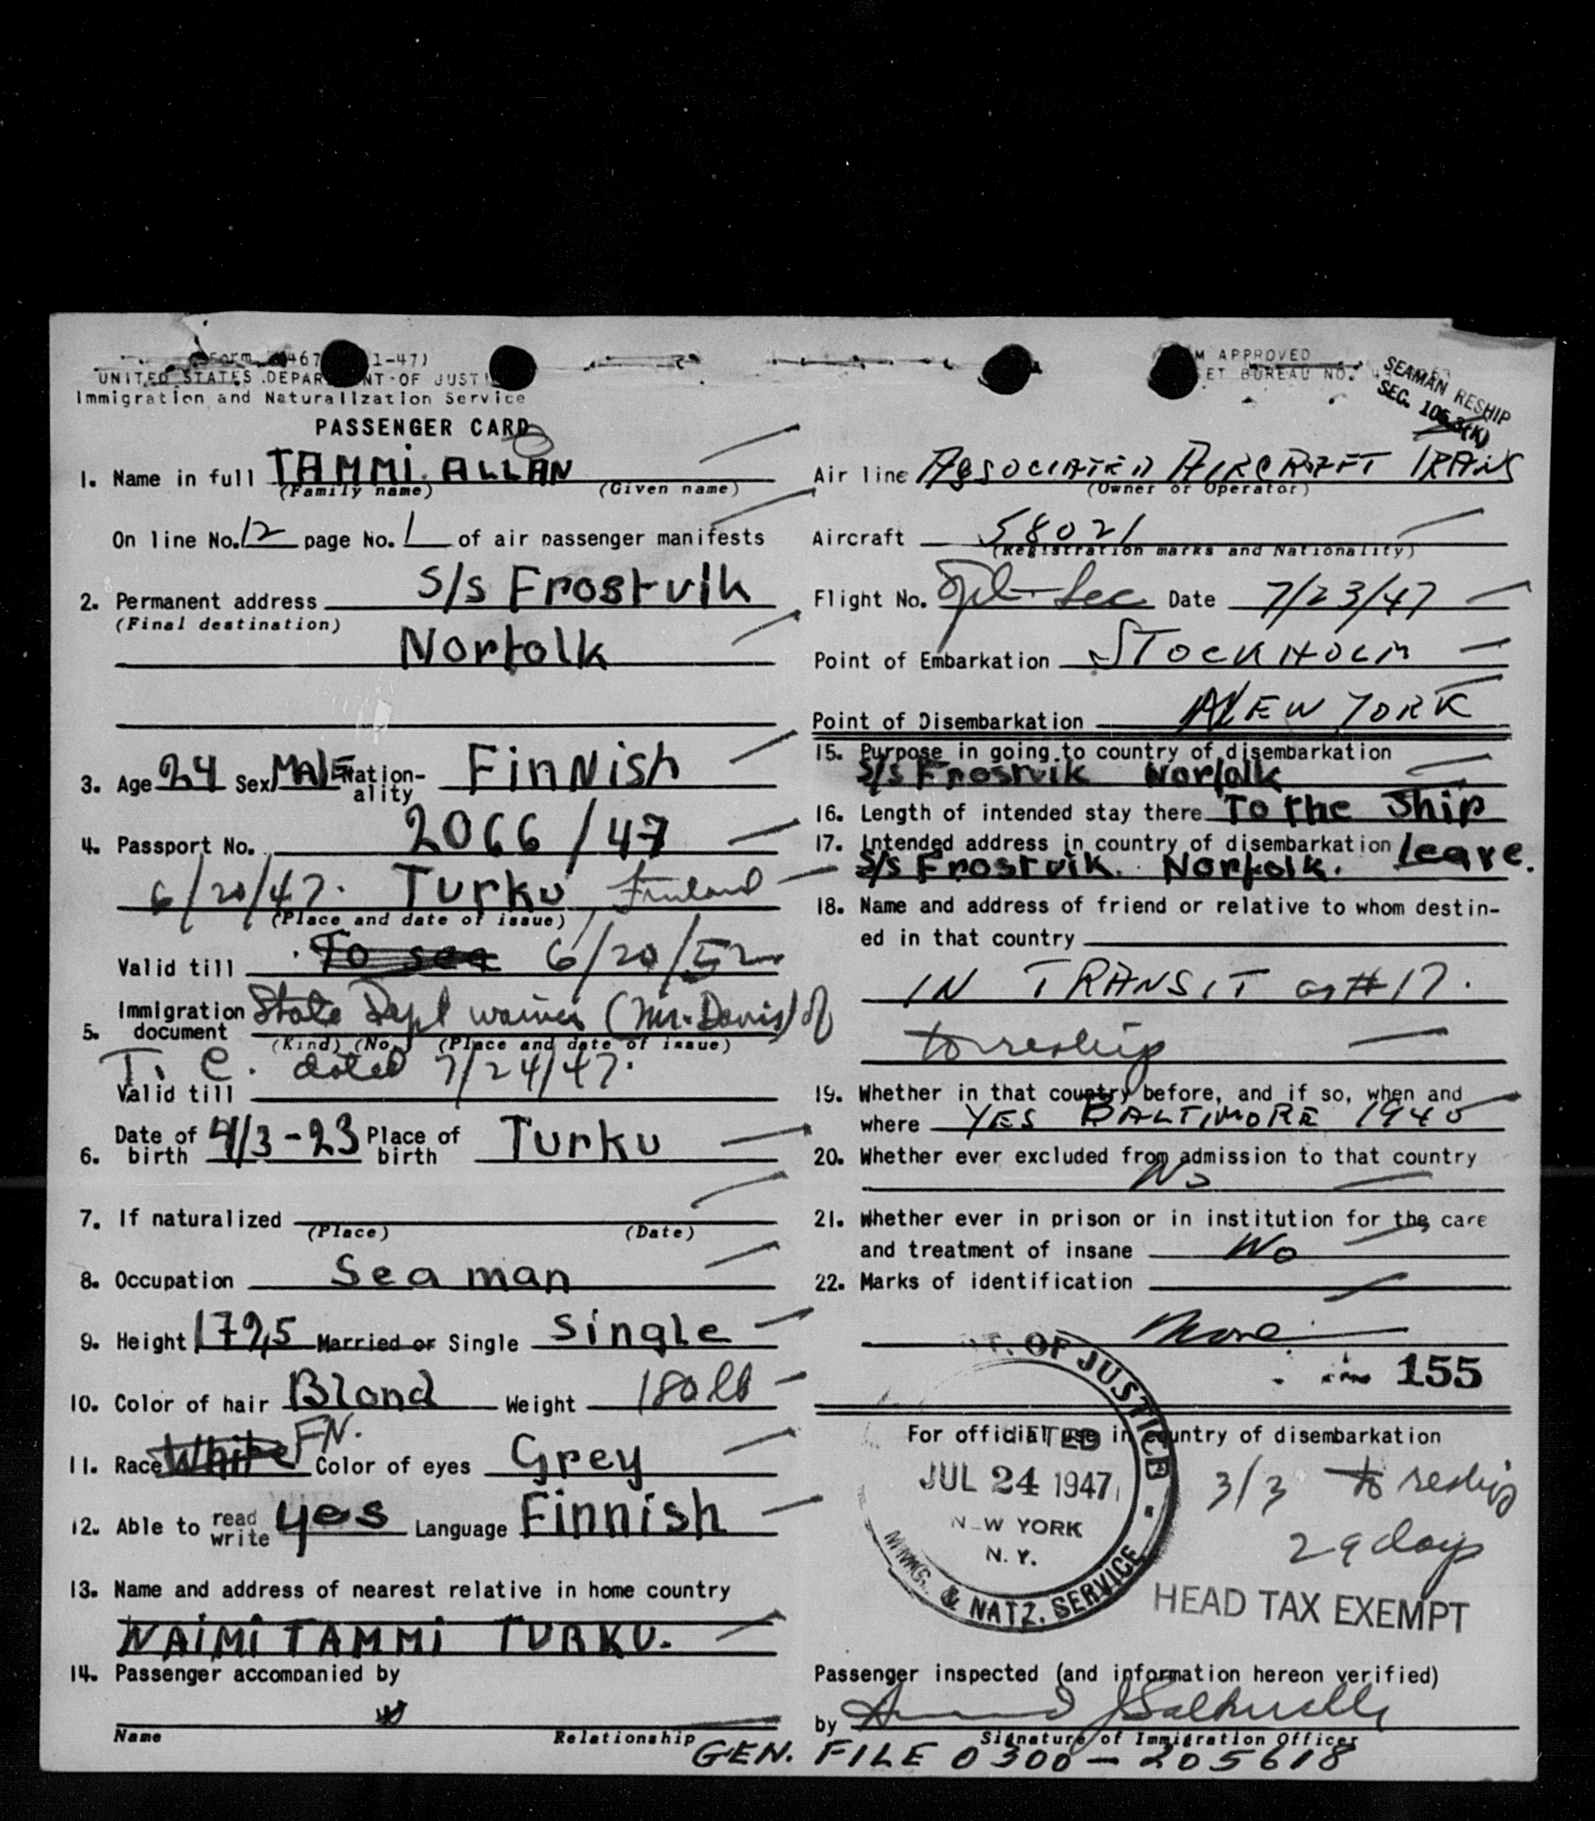 UNITED STATES DEPARTMENT OF JUSTICE
Immigration and Naturalization Service
PASSENGER CARD
1. Name in full TAMMI. ALLAN
(Family name) (Given name)
On line No. 12 page No. 1 of air passenger manifests
2. Permanent address S/S Frostvik
(Final destination)
Norfolk
3. Age 24 Sex MALE Nation-ality Finnish
4. Passport No. 2066/47
6/20/47. Turku Finland
(Place and date of issue)
Valid till To sea 6/20/52
5. Immigration document State Dept waiver (Mr. Davis) of
(Kind) (No.) (Place and date of issue)
T. C. dated 7/24/47.
Valid till
6. Date of birth 4/3-23 Place of birth Turku
7. If naturalized
(Place) (Date)
8. Occupation Seaman
9. Height 179,5 Married or Single Single
10. Color of hair Blond Weight 180 lb
11. Race White FN. Color of eyes Grey
12. Able to read write yes Language Finnish
13. Name and address of nearest relative in home country
WAIMI TAMMI TURKU.
14. Passenger accompanied by
Name Relationship
M APPROVED
ET BUREAU NO.
SEAMAN RESHIP
SEC.
Air line ASSOCIATED AIRCRAFT TRANS
(Owner or Operator)
Aircraft 58021
(Registration marks and Nationality)
Flight No. Date 7/23/47
Point of Embarkation STOCKHOLM
Point of Disembarkation NEW YORK
15. Purpose in going to country of disembarkation
S/S Frostvik Norfolk
16. Length of intended stay there To the Ship
17. Intended address in country of disembarkation leave.
S/S Frostvik. Norfolk.
18. Name and address of friend or relative to whom destin-
ed in that country
IN TRANSIT as #17.
to reship
19. Whether in that country before, and if so, when and
where YES BALTIMORE 1940
20. Whether ever excluded from admission to that country
No
21. Whether ever in prison or in institution for the care
and treatment of insane No
22. Marks of identification
None
155
For official use in country of disembarkation
T. OF JUSTICE
JUL 24 1947
N_W YORK
N. Y.
IMMIG. & NATZ. SERVICE
3/3 to reship
29 days
HEAD TAX EXEMPT
Passenger inspected (and information hereon verified)
by
Signature of Immigration Officer
GEN. FILE 0300-205618